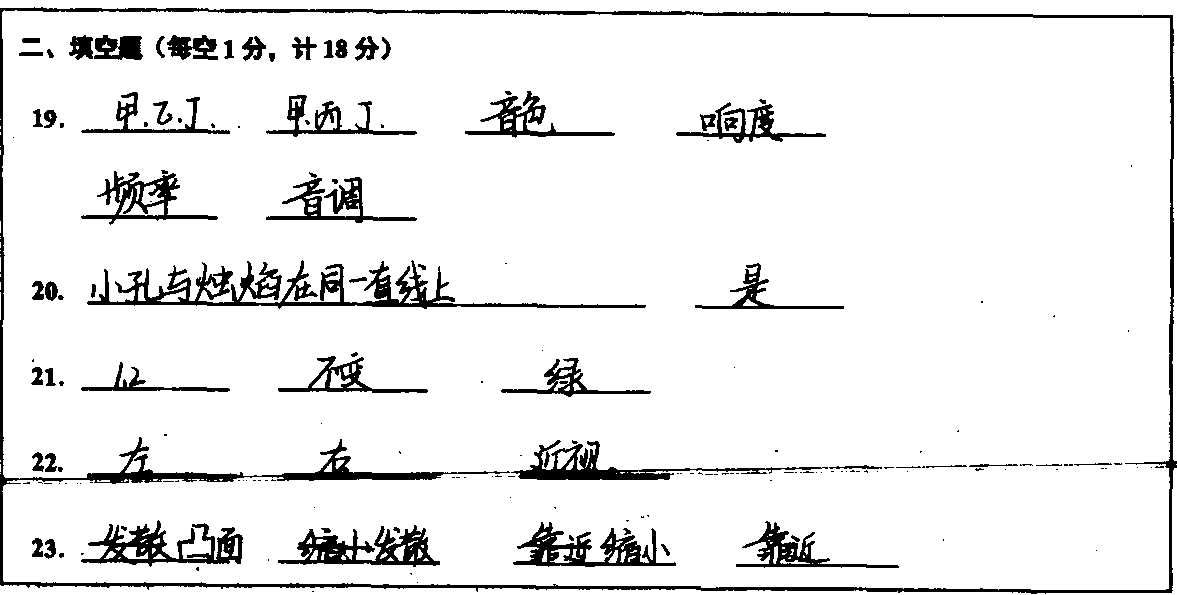 二、填空题（每空1分，计18分）
19. 甲.乙.丁. 甲.丙丁. 音色 响度
频率 音调
20. 小孔与烛焰在同一直线上 是
21. 1.2 不变 绿
22. 左 右 近视
23. 发散 凸面 缩小 发散 靠近 缩小 靠近